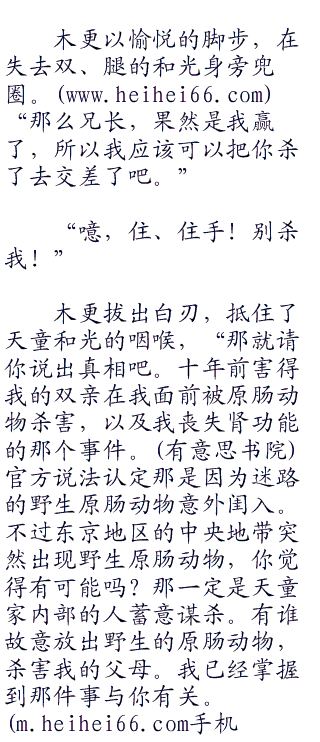 木更以愉悦的脚步，在
失去双、腿的和光身旁兜
圈。(www.heihei66.com)
“那么兄长，果然是我赢
了，所以我应该可以把你杀
了去交差了吧。”
“噫，住、住手！别杀
我！”
木更拔出白刃，抵住了
天童和光的咽喉，“那就请
你说出真相吧。十年前害得
我的双亲在我面前被原肠动
物杀害，以及我丧失肾功能
的那个事件。(有意思书院)
官方说法认定那是因为迷路
的野生原肠动物意外闺入。
不过东京地区的中央地带突
然出现野生原肠动物，你觉
得有可能吗？那一定是天童
家内部的人蓄意谋杀。有谁
故意放出野生的原肠动物，
杀害我的父母。我已经掌握
到那件事与你有关。
(m.heihei66.com手机